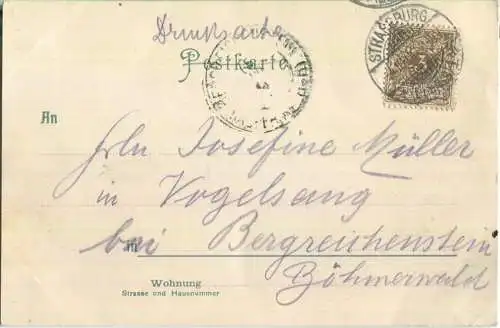 Drucksache
Postkarte
STRASSBURG
3
An
Frln Josefine Müller
in Vogelsang
in
bei Bergreichenstein
Böhmerwald
Wohnung
Strasse und Hausnummer